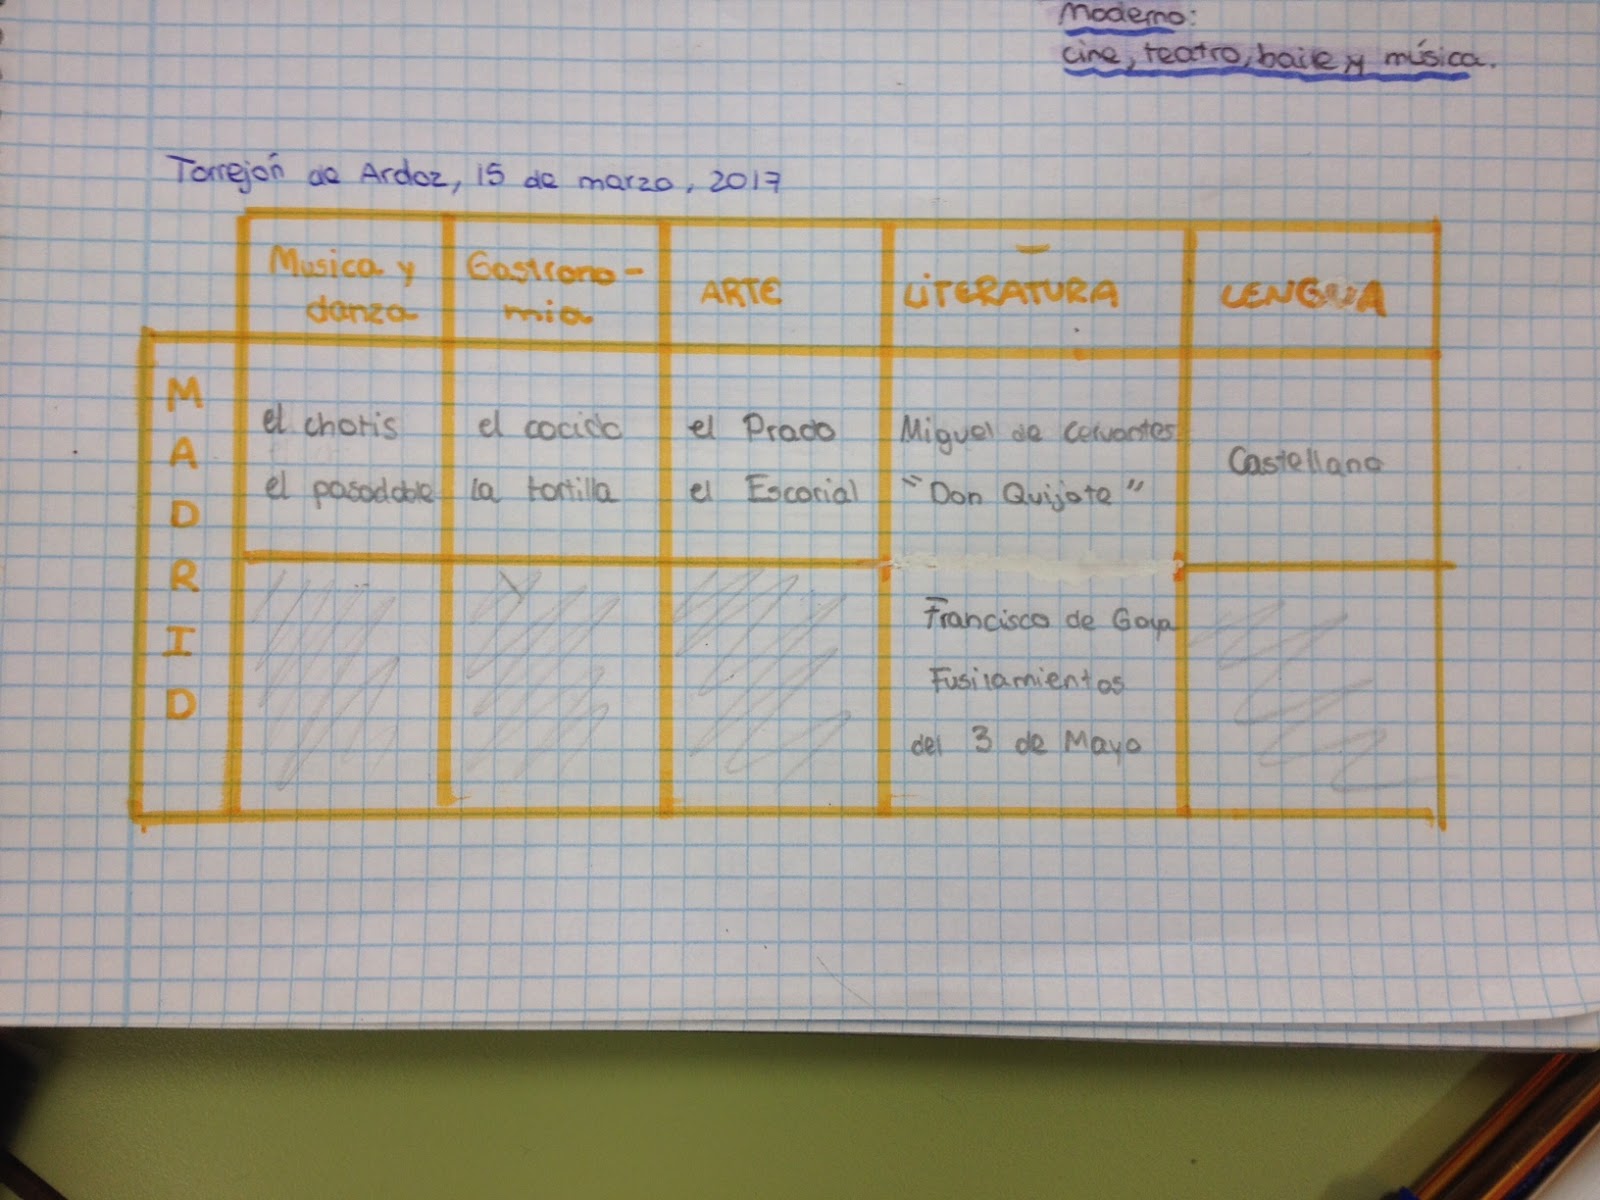 Moderno:
cine, teatro, baile y música.
Torrejón de Ardoz, 15 de marzo, 2017
Musica y
danza
Gastrono-
mia
ARTE
LITERATURA
LENGUA
MADRID
el chotis
el pasodoble
el cocido
la tortilla
el Prado
el Escorial
Miguel de Cervantes
"Don Quijote"
Castellano
Francisco de Goya
Fusilamientos
del 3 de Mayo